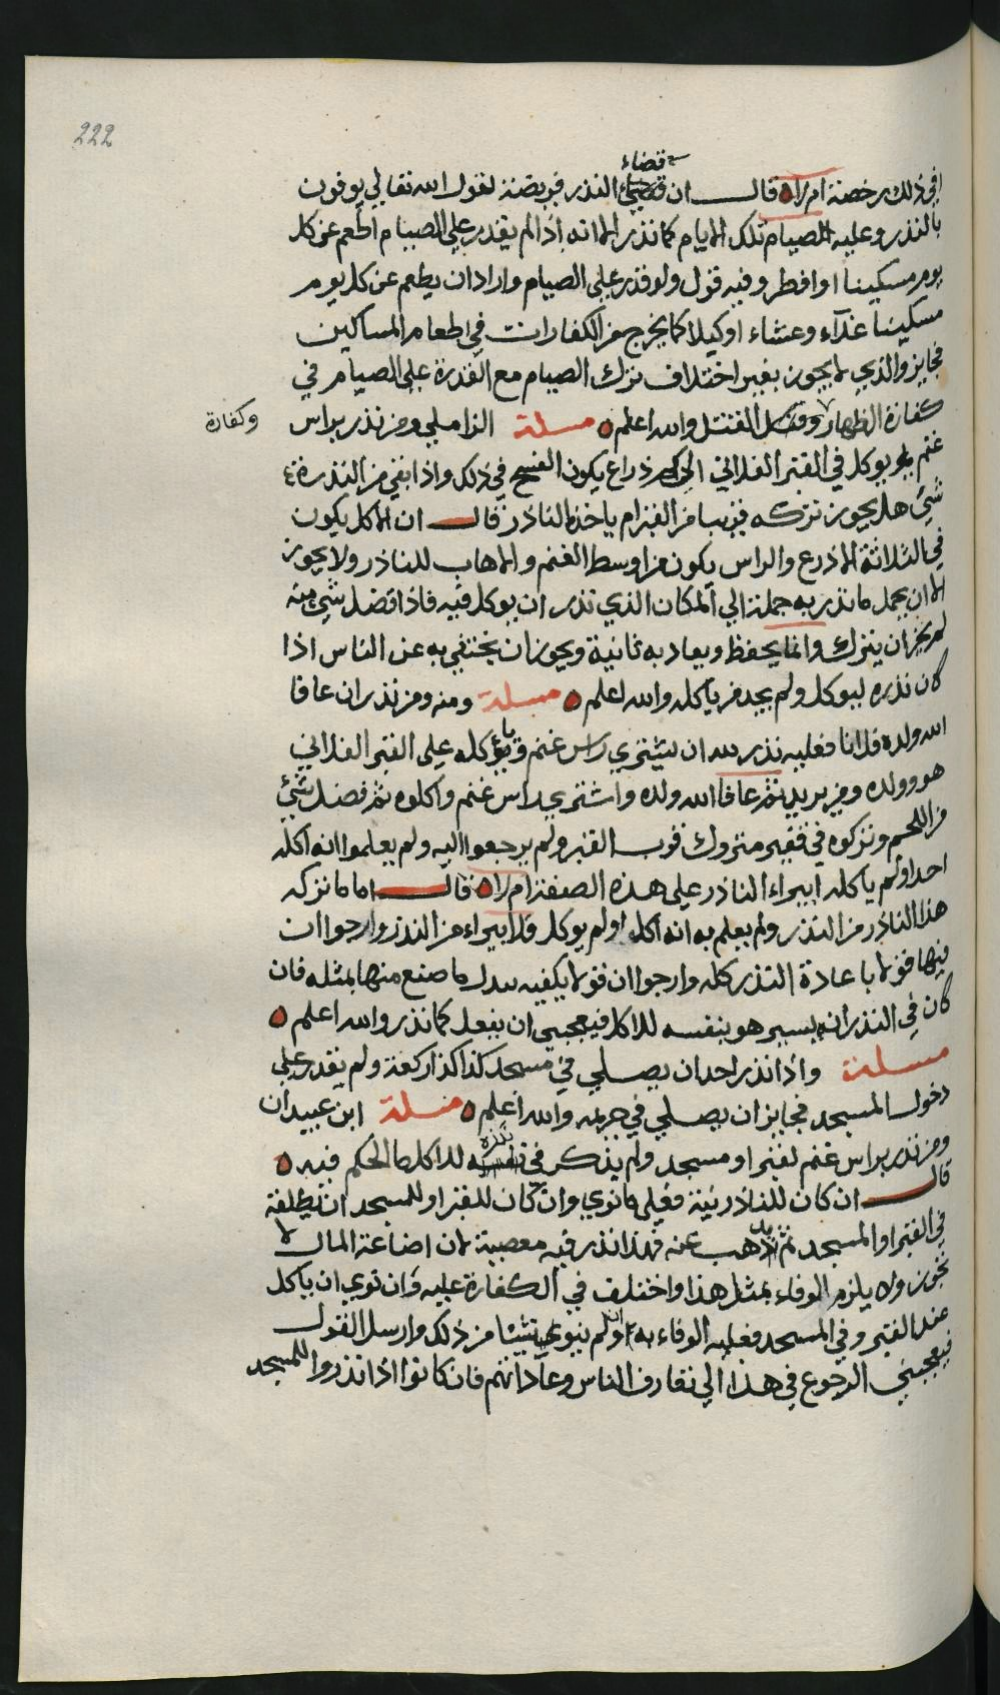 222
قضاء
افي ذلك رخصة ام لا قال ان النذر فريضة لقول الله تعالى يوفون
بالنذر وعليه الصيام تلك الايام كما نذر الا انه اذا لم يقدر على الصيام اطعم عن كل
يوم مسكينا او افطر وفيه قول ولو قدر على الصيام واراد ان يطعم عن كل يوم
مسكينا غدآء وعشاء او كيلا كما يخرج من الكفارات في اطعام المساكين
فجايز والذي لا يجوز بغير اختلاف ترك الصيام مع القدرة على الصيام في
كفارة الظهار القتل والله اعلم مسئلة الزاملي ومن نذر براس
وكفارة
غنم يوكل في القبر الفلاني الى كم ذراع يكون الفسح في ذلك واذا بقي من النذر
شيء هل يجوز تركه قريبا من القبر ام ياخذه الناذر قال ان الاكل يكون
في الثلاثة الاذرع والراس يكون من اوسط الغنم والاهاب للناذر ولا يجوز
الا ان يحمل ما نذر به جملة الى المكان الذي نذر ان يوكل فيه فاذا فضل شيء منه
لم يجز ان يترك وانما يحفظ ويعاد به ثانية ويجوز ان يختفي به عن الناس اذا
كان نذره ليوكل ولم يجد من ياكله والله اعلم مسئلة ومنه ومن نذر ان عافا
الله ولده فلانا فعليه نذر لله ان يشتري راس غنم ويؤكله على القبر الفلاني
هو وولده ومن يريد ثم عافا الله ولده واشترى راس غنم واكلوه ثم فضل شيء
من اللحم وتركوه في قفير متروك قرب القبر ولم يرجعوا اليه ولم يعلموا انه اكله
احد او لم ياكله ايبراء الناذر على هذه الصفة ام لا قال اما ما تركه
هذا الناذر من النذر ولم يعلم به انه اكله او لم يوكل فلا يبراء من النذر وارجوا ان
فيها قولا باعادة النذر كله وارجوا ان قولا يكفيه ببدل ما صنع منها بمثله فان
كان في النذر انه يسير هو بنفسه للاكل فيعجبني ان يفعل كما نذر والله اعلم
مسئلة واذا نذر احد ان يصلي في مسجد كذا كذا ركعة ولم يقدر على
دخول المسجد فجايز ان يصلي في حريمه والله اعلم مسئلة ابن عبيدان
ومن نذر براس غنم لقبر او مسجد ولم يذكر في نذره للاكل ما الحكم فيه
قال ان كان للناذر نية فعلى ما نوى وان كان للقبر او للمسجد ان يطلقه
في القبر او المسجد ثم يذهب عنه فهذا نذر فيه معصية لان اضاعة المال لا
تجوز ولا يلزم الوفاء بمثل هذا واختلف في الكفارة عليه وان نوى ان ياكل
عند القبر وفي المسجد فعليه الوفاء به وان لم ينوي شيئا من ذلك وارسل القول
فيعجبني الرجوع في هذا الى تعارف الناس وعاداتهم فان كانوا اذا نذروا للمسجد